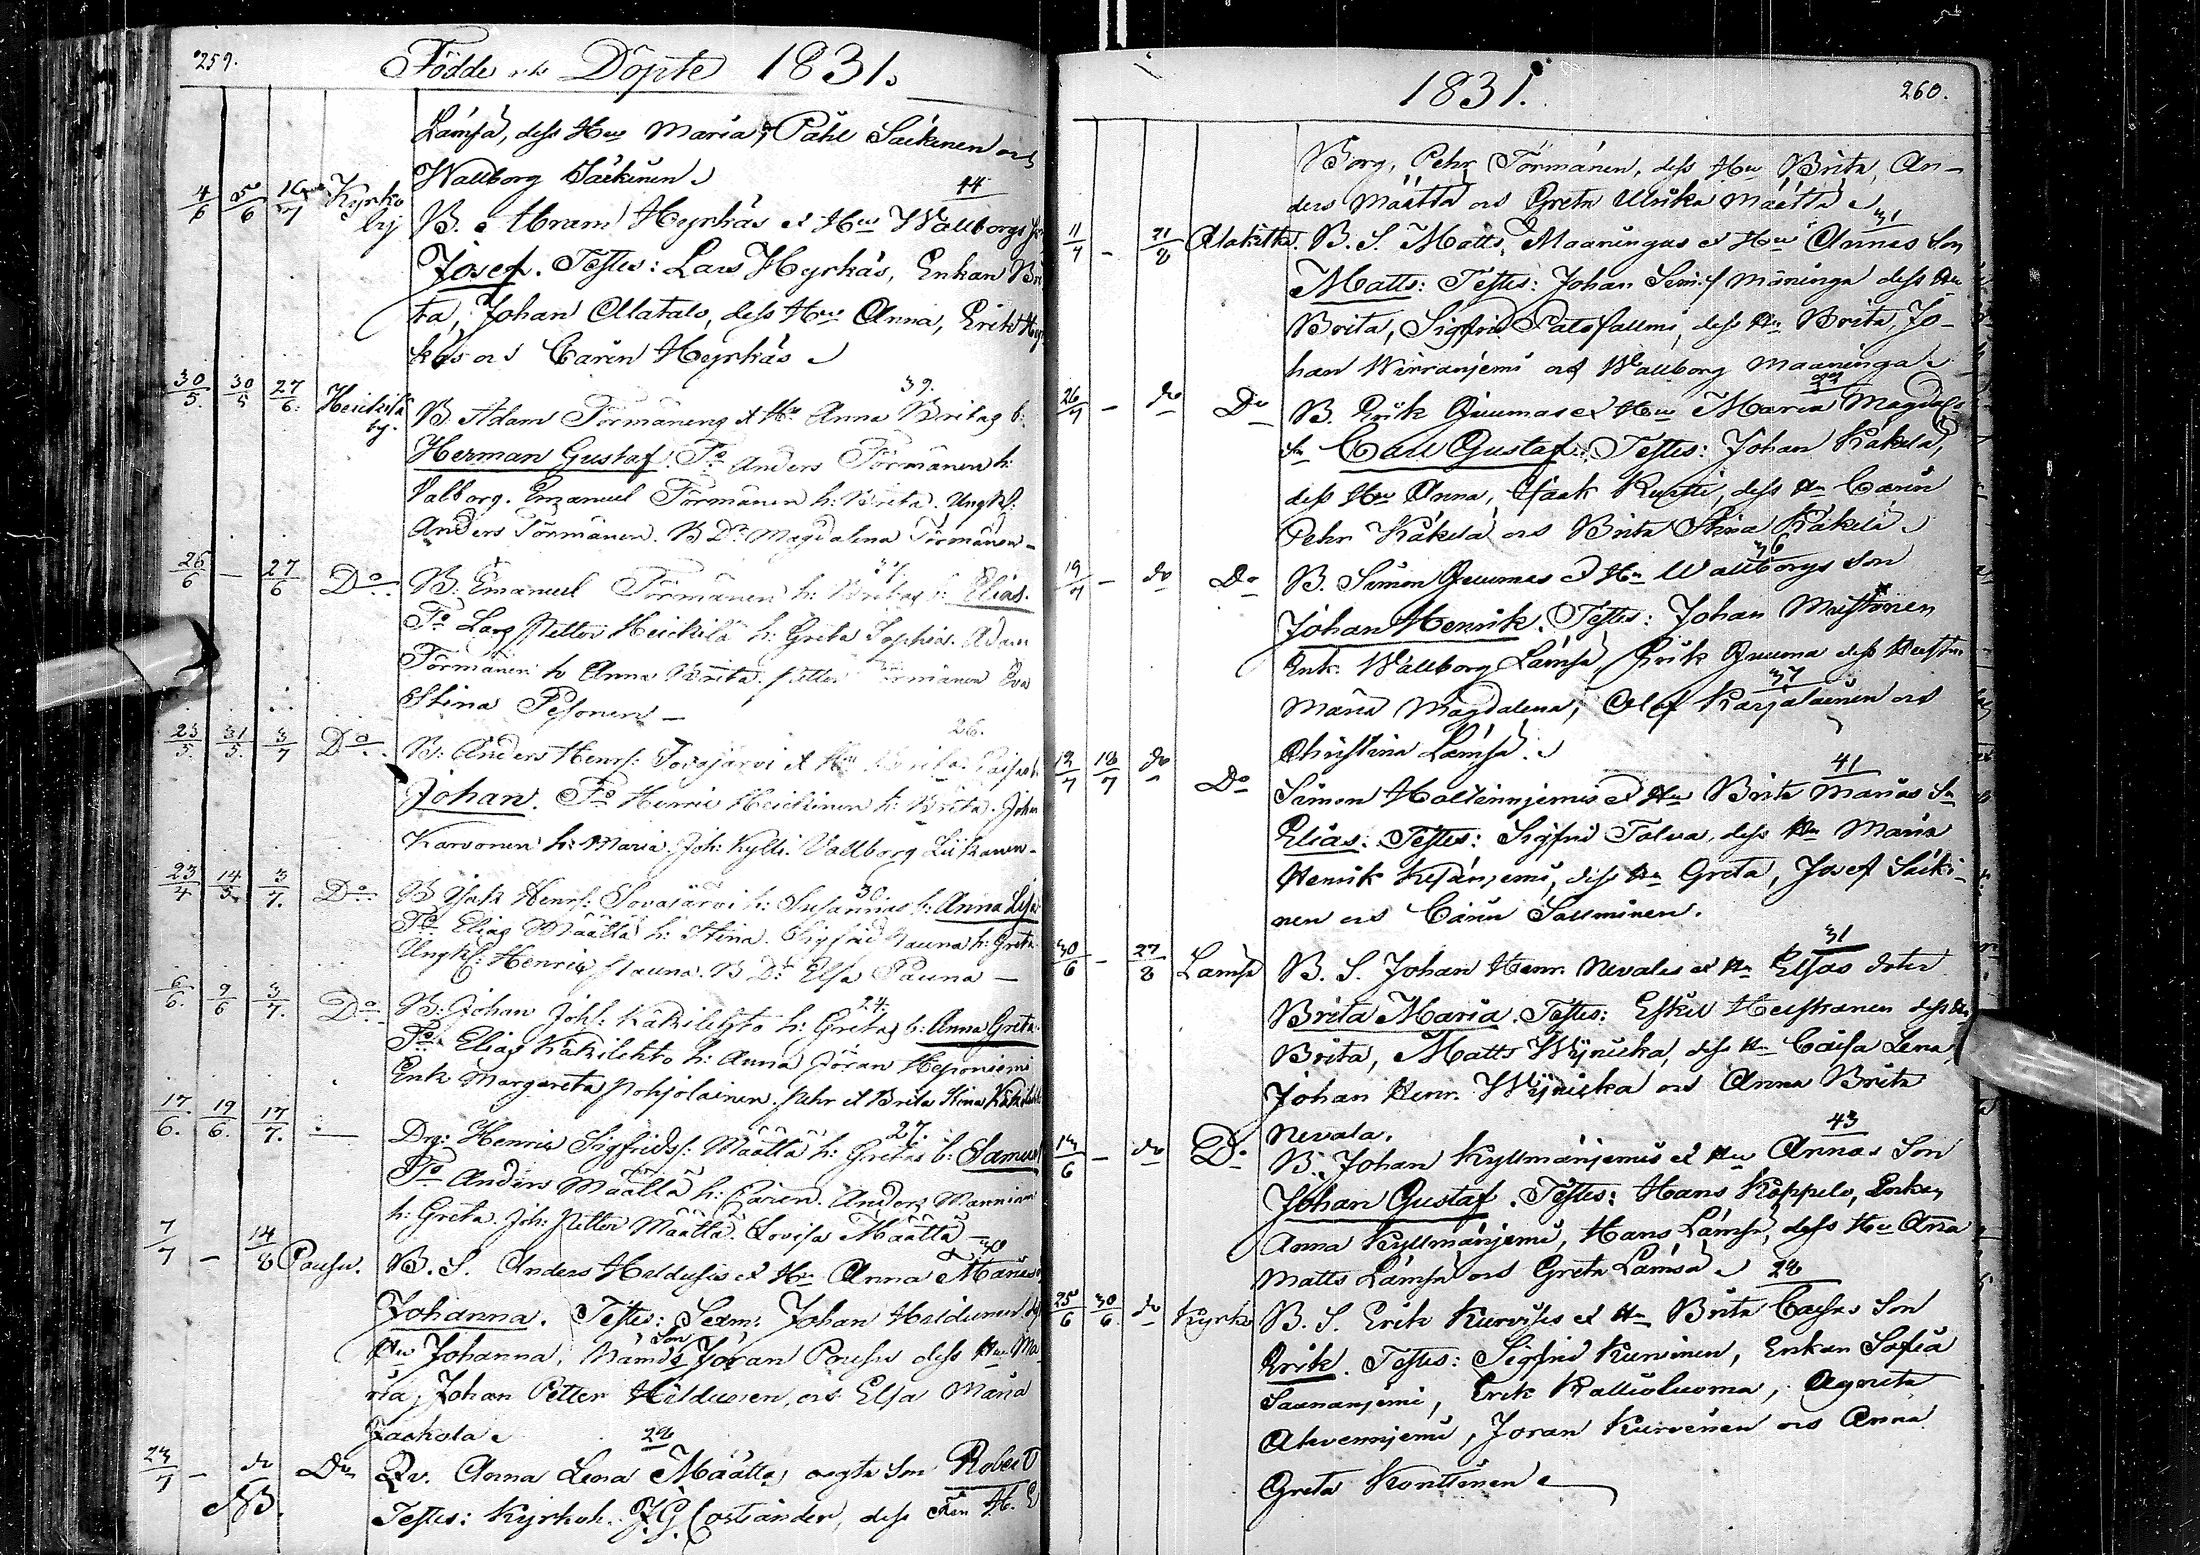 259.
Födde och Döpte 1831.
Lämsä, dess Hu Maria, Påhl Säckinen och
Wallborg Säkinen
4/6 5/6 7 Kyrko
by
44
B. Abram Heyrhäs et Hus Wallborgs
Josef. Testes: Lars Heyrhäs, Enkan Bri
ta, Johan Alatalo, dess Hu Anna, Erik Hey
käs och Carin Heyrhäs
30/5. 30/5 27/6. Heickilä
by.
39.
B. Adam Törmäneng et Hu Anna Britas b:
Herman Gustaf. To Anders Törmänen h:
Valborg. Emanuel Törmänen h: Brita. Ungk:
Anders Törmänen. B Dr Magdalena Törmänen -
26/6 — 27/6 Do.
B: Emanuel Törmänen h: Britas b: Elias.
To Lars Petter Heickilä h: Greta Sophia. Adam
Törmänen h Anna Brita. Petter Törmänen Eva
Stina Pesonen —
25/5. 31/5. 3/7 Do.
26.
B: Anders Henrs: Sovajärvi et Hu
Johan. To Henric Heickinen h: Brita. Johan
Karvonen h: Maria. Joh: Kylli. Vallborg Liikanen -
23/4 14/5. 3/7. Do
30.
B Isak Henrs: Sovajärvi h: Susannas b: Anna Lisa
To Elias Määttä h: Stina. Sigfrid Pauna h: Greta
Ungk: Henric Pauna. B Dr Elsa Pauna —
6/6. 9/6 3/7. Do
24.
B: Johan Johs: Käkilehto h: Gretas b: Anna Greta.
To Elias Käkilehto h: Anna Jöran Heponiemi
Enk Margareta Pohjolainen. Pehr et Brita Stina
17/6. 19/6. 17/7. —
27.
Drg: Henric Sigfrids: Määttä h: Gretas b: Samuel
To Anders Määttä h: Caren. Anders Manninen
h: Greta. Joh: Petter Määttä. Lovisa Määttä —
7/7 — 14/8 Posio.
30
B. S. Anders Hildusis et Hu Anna Marias
Johanna. Testes: Sexm: Johan Hildunen
Hu Johanna, Nämdeman Jöran Posio dess Hu Ma
ria, Johan Petter Hildunen, och Elsa Maria
Jaakola
23/7 — do Do
28
Qv. Anna Lena Määttäs oegta Son Robert
NB.
Testes: Kyrkoh. J. G. Costiander, dess
1831.
260.
Borg, Pehr Törmänen, dess Hu Brita, An-
ders Määttä och Greta Ulrika Määttä
11/7 — 21/8 Alakitka.
31
B. S. Matts Maaningas et Hu Annas Son
Matts: Testes: Johan Maninga dess Hu
Brita, Sigfrid Palosallmi, dess Hu Brita, Jo-
han Wirranjemi och Wallborg Maaninga
26/7 — do Do
B. Erik Qvumas et Hu Maria Magdals
Sn Carl Gustaf: Testes: Johan Käkelä,
dess Hu Anna, Isaak Kurtti, dess Hu Carin
Pehr Käkelä och Brita Stina Käkelä
19/7 — do Do
36
B. Simon Qvumas et Hu Wallborgs Son
Johan Henrik. Testes: Johan Mustonen
Enk. Wallborg Lämsä, Erik Qvuma dess Hustru
37
Maria Magdalena, Olof Karjalainen och
Christina Lämsä.
12/7 18/7 do Do
41
Simon Holtinnjemis et Hu Brita Marias Sn
Elias: Testes: Sigfrid Tolva, dess Hu Maria
Henrik Kesänjemi, dess Hu Greta, Josef Säki-
nen och Carin Sallminen.
30/6 — 27/8 Lämsä
31
B. S. Johan Henr. Nevalas et Hu Elsas doter
Brita Maria. Testes: Eskel Heiskanen dess Hu
Brita, Matts Wÿnicka, dess Hu Caisa Lena,
Johan Henr. Wÿnicka och Anna Brita
Nevala.
13/6 — do Do
43
B. Johan Kyllmänjemis et Hu Annas Son
Johan Gustaf. Testes: Hans Koppelo, Enkan
Anna Kyllmänjemi, Hans Lämsä, dess Hu Anna
Matts Lämsä och Greta Lämsä
25/6 30/6. do Kyrko
28
B. S. Erik Kurvises et Hu Brita Caisas Son
Erik. Testes: Sigfrid Kurvinen, Enkan Sofia
Saananjemi, Erik Kallioluoma, Agneta
Ahvennjemi, Joran Kurvenen och Anna
Greta Konttinen